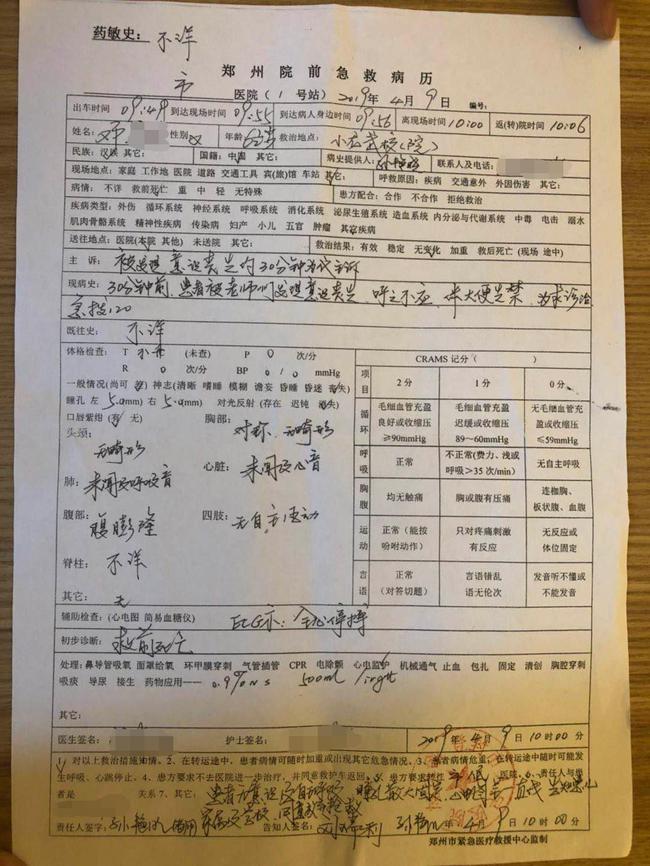 药敏史: 不详
市
郑州院前急救病历
医院( 1 号站) 2019年 4月 9日 编号:
出车时间 09:49 到达现场时间 09:55 到达病人身边时间 09:56 离现场时间 10:00 返(转)院时间 10:06
姓名: 性别 女 年龄 救治地点:
民族: 汉族 其它: 国籍: 中国 其它: 病史提供人: 联系人及电话:
现场地点: 家庭 工作地 医院 道路 交通工具 宾(旅)馆 车站 其它: 呼救原因: 疾病 交通意外 外因伤害 其它:
病情: 不详 救前死亡 重 中 轻 无特殊 患方配合: 合作 不合作 拒绝救治
疾病类型: 外伤 循环系统 神经系统 呼吸系统 消化系统 泌尿生殖系统 造血系统 内分泌与代谢系统 中毒 电击 溺水
肌肉骨骼系统 精神性疾病 传染病 妇产 小儿 五官 肿瘤 其它疾病
送往地点: 医院(本院 其他) 未送院 其它: 救治结果: 有效 稳定 无变化 加重 救后死亡 (现场 途中)
主 诉: 被发现意识丧失约30分钟为代主诉
现病史: 30分钟前,患者被老师们发现意识丧失,呼之不应,伴大便失禁,为求诊治
急拨120
既往史: 不详
体格检查: T (未查) P 0 次/分
R 0 次/分 BP 0/0 mmHg
一般情况(尚可 差) 神志(清晰 嗜睡 模糊 谵妄 昏睡 昏迷 丧失)
瞳孔 左 5.0(mm) 右 5.0(mm) 对光反射 (存在 迟钝 消失)
口唇紫绀 (有 无) 胸部: 对称、无畸形
头颈: 无畸形
肺: 未闻及呼吸音 心脏: 未闻及心音
腹部: 腹膨隆 四肢: 无自主活动
脊柱: 不详
其它: 无
CRAMS 记分 ( )
项目 2 分 1 分 0 分
循环 毛细血管充盈良好或收缩压≥90mmHg 毛细血管充盈迟缓或收缩压89~60mmHg 无毛细血管充盈或收缩压≤59mmHg
呼吸 正常 不正常(费力、浅或呼吸>35 次/min) 无自主呼吸
胸腹 均无触痛 胸或腹有压痛 连枷胸、板状腹、血腹
运动 正常(能按吩咐动作) 只对疼痛刺激有反应 无反应或体位固定
言语 正常(对答切题) 言语错乱语无伦次 发音听不懂或不能发音
辅助检查: (心电图 简易血糖仪) ECG示: 全心停搏
初步诊断: 救前死亡
处理: 鼻导管吸氧 面罩给氧 环甲膜穿刺 气管插管 CPR 电除颤 心电监护 机械通气 止血 包扎 固定 清创 胸腔穿刺
吸痰 导尿 接生 药物应用—— 0.9% NS 500ml
其它:
医生签名: 护士签名: 2019 年 4 月 9 日 10 时 00 分
1、对以上救治措施知情。2、在转运途中,患者病情可随时加重或出现其它危急情况。3、患者病情危重,在转运途中随时可能发
生呼吸、心跳停止。4、患方要求不去医院进一步治疗,并同意救护车返回。5、患方要求转往 医院。6、责任人与患
者是 关系 7、其它: 患者为意识丧失
责任人签字: 告知人签名: 4 月 9 日 10 时 00 分
郑州市紧急医疗救援中心监制